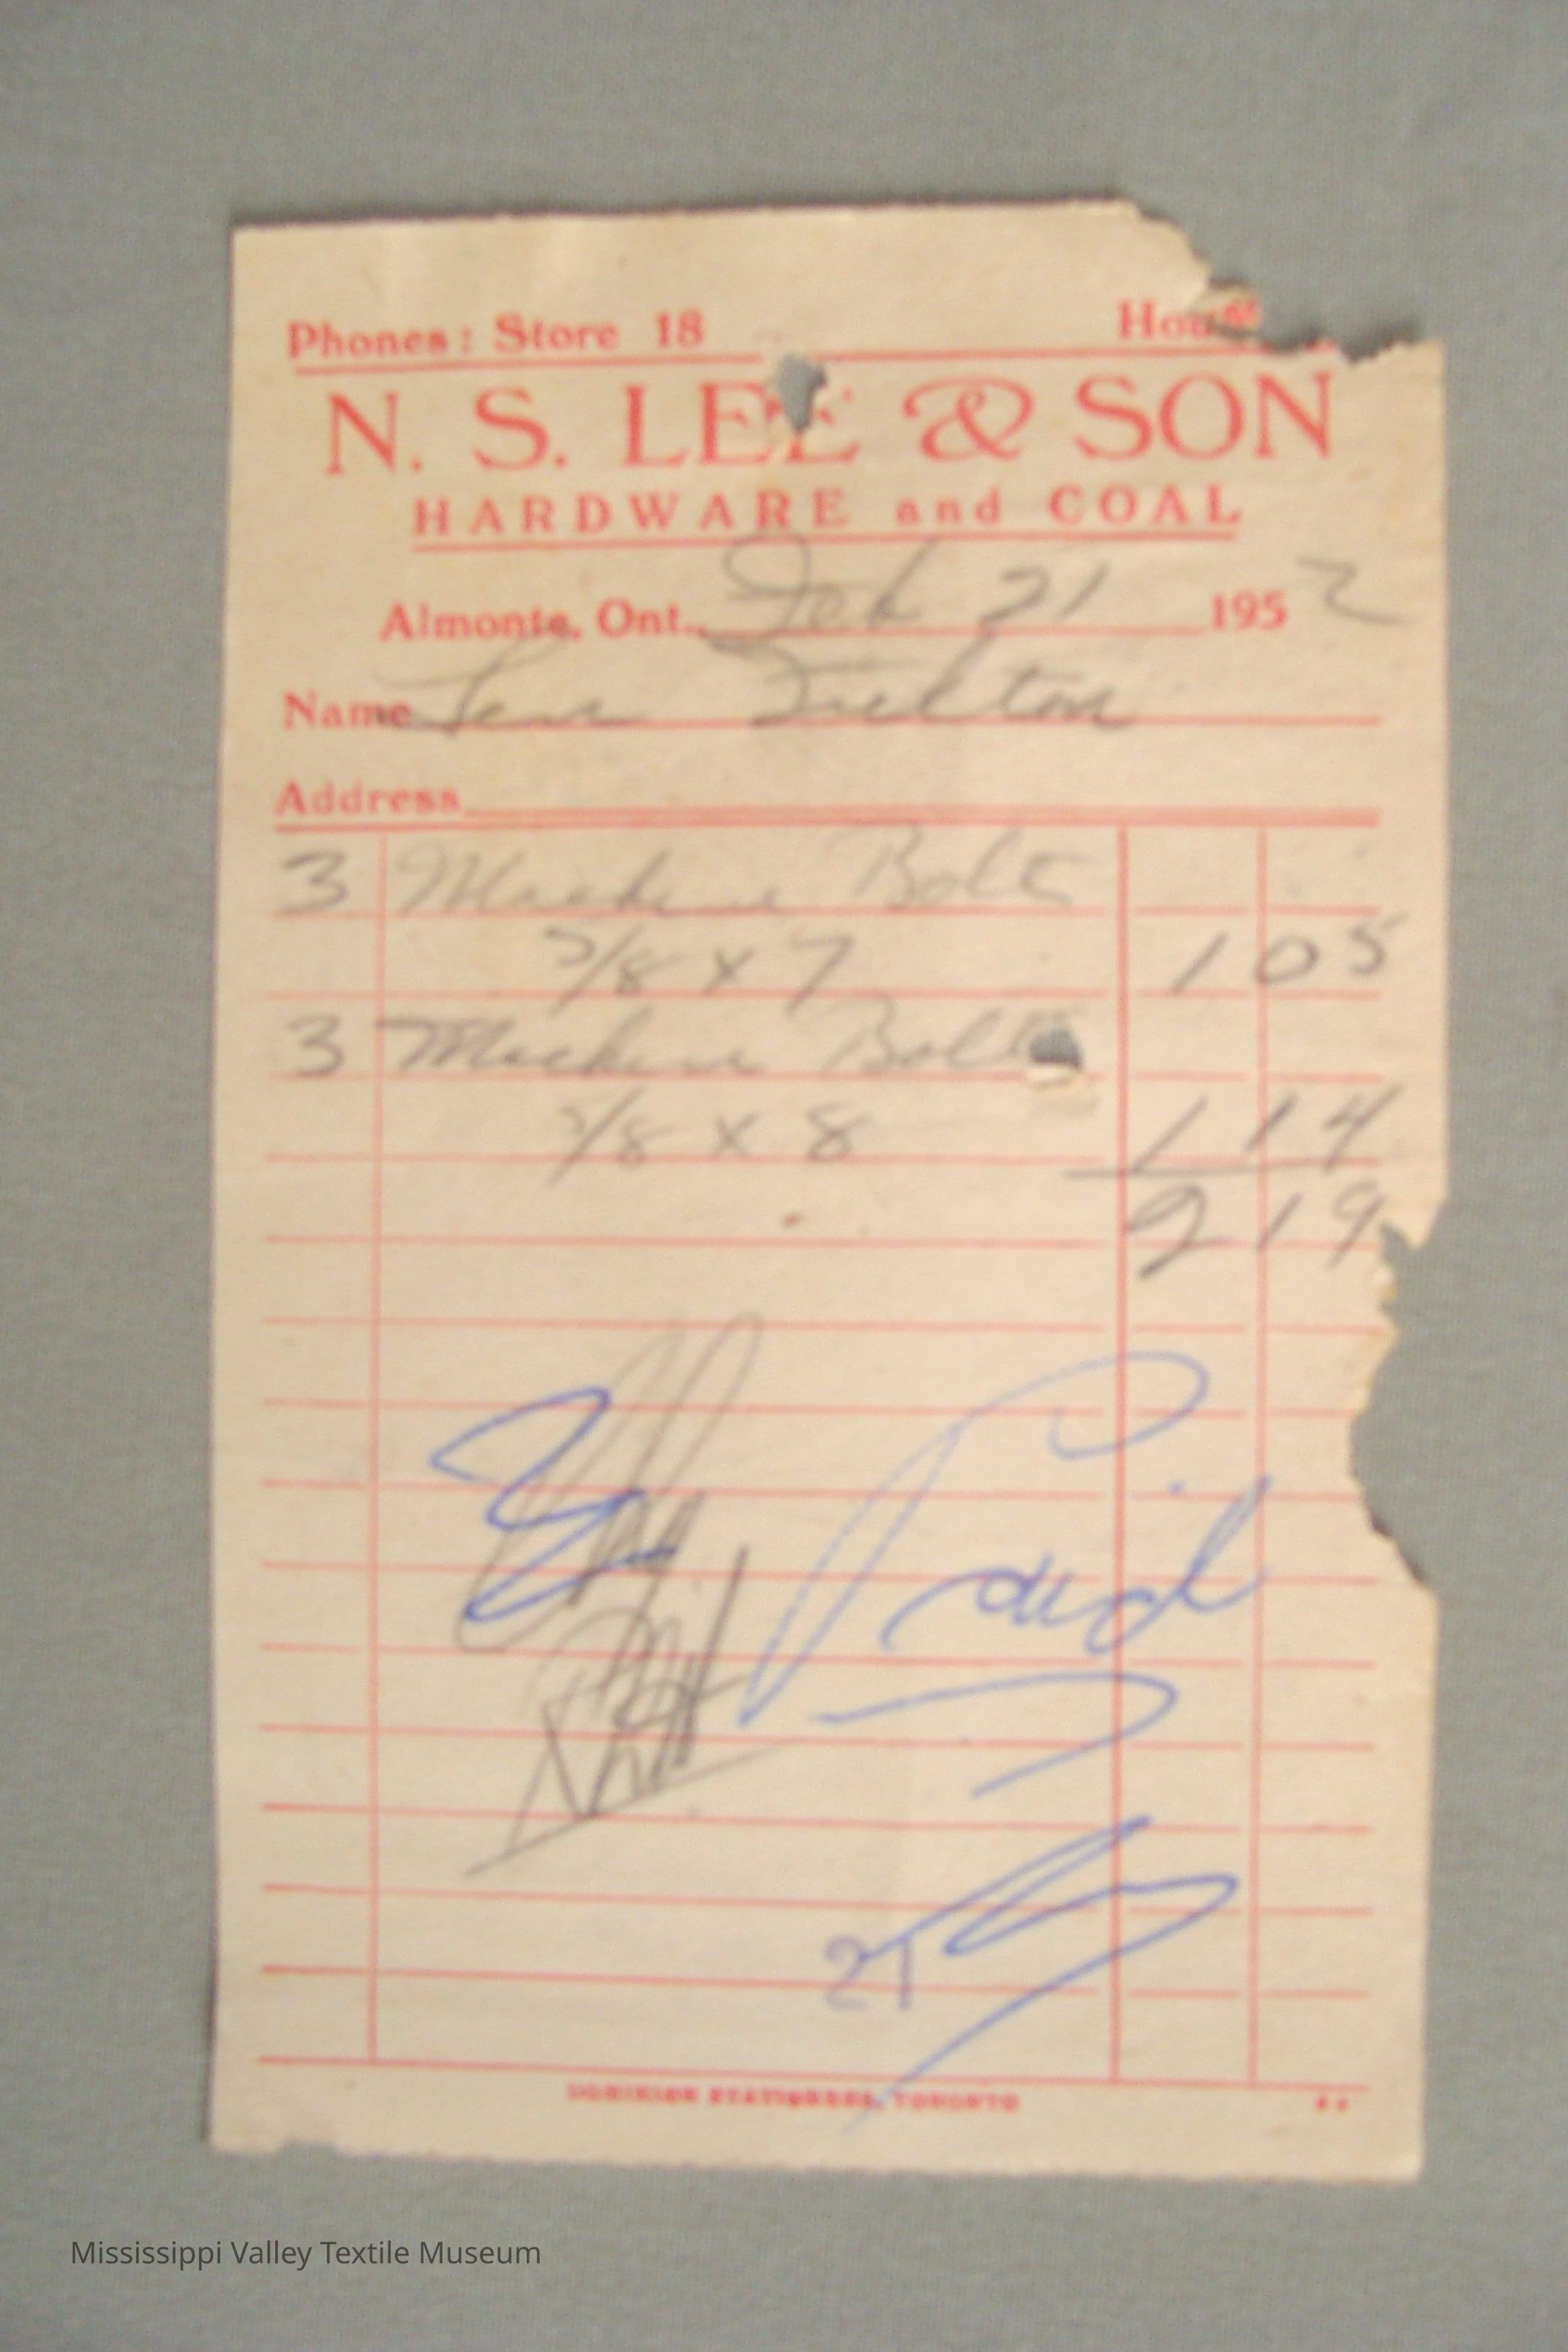 Phones: Store 18
N. S. LEE & SON
HARDWARE and COAL
Almonte, Ont., Feb 21 1952
Name
Address
3 Machine Bolts
5/8 x 7 1 05
3 Machine Bolts
5/8 x 8 1 14
2 19
Paid
21
DOMINION STATIONERS, TORONTO
Mississippi Valley Textile Museum